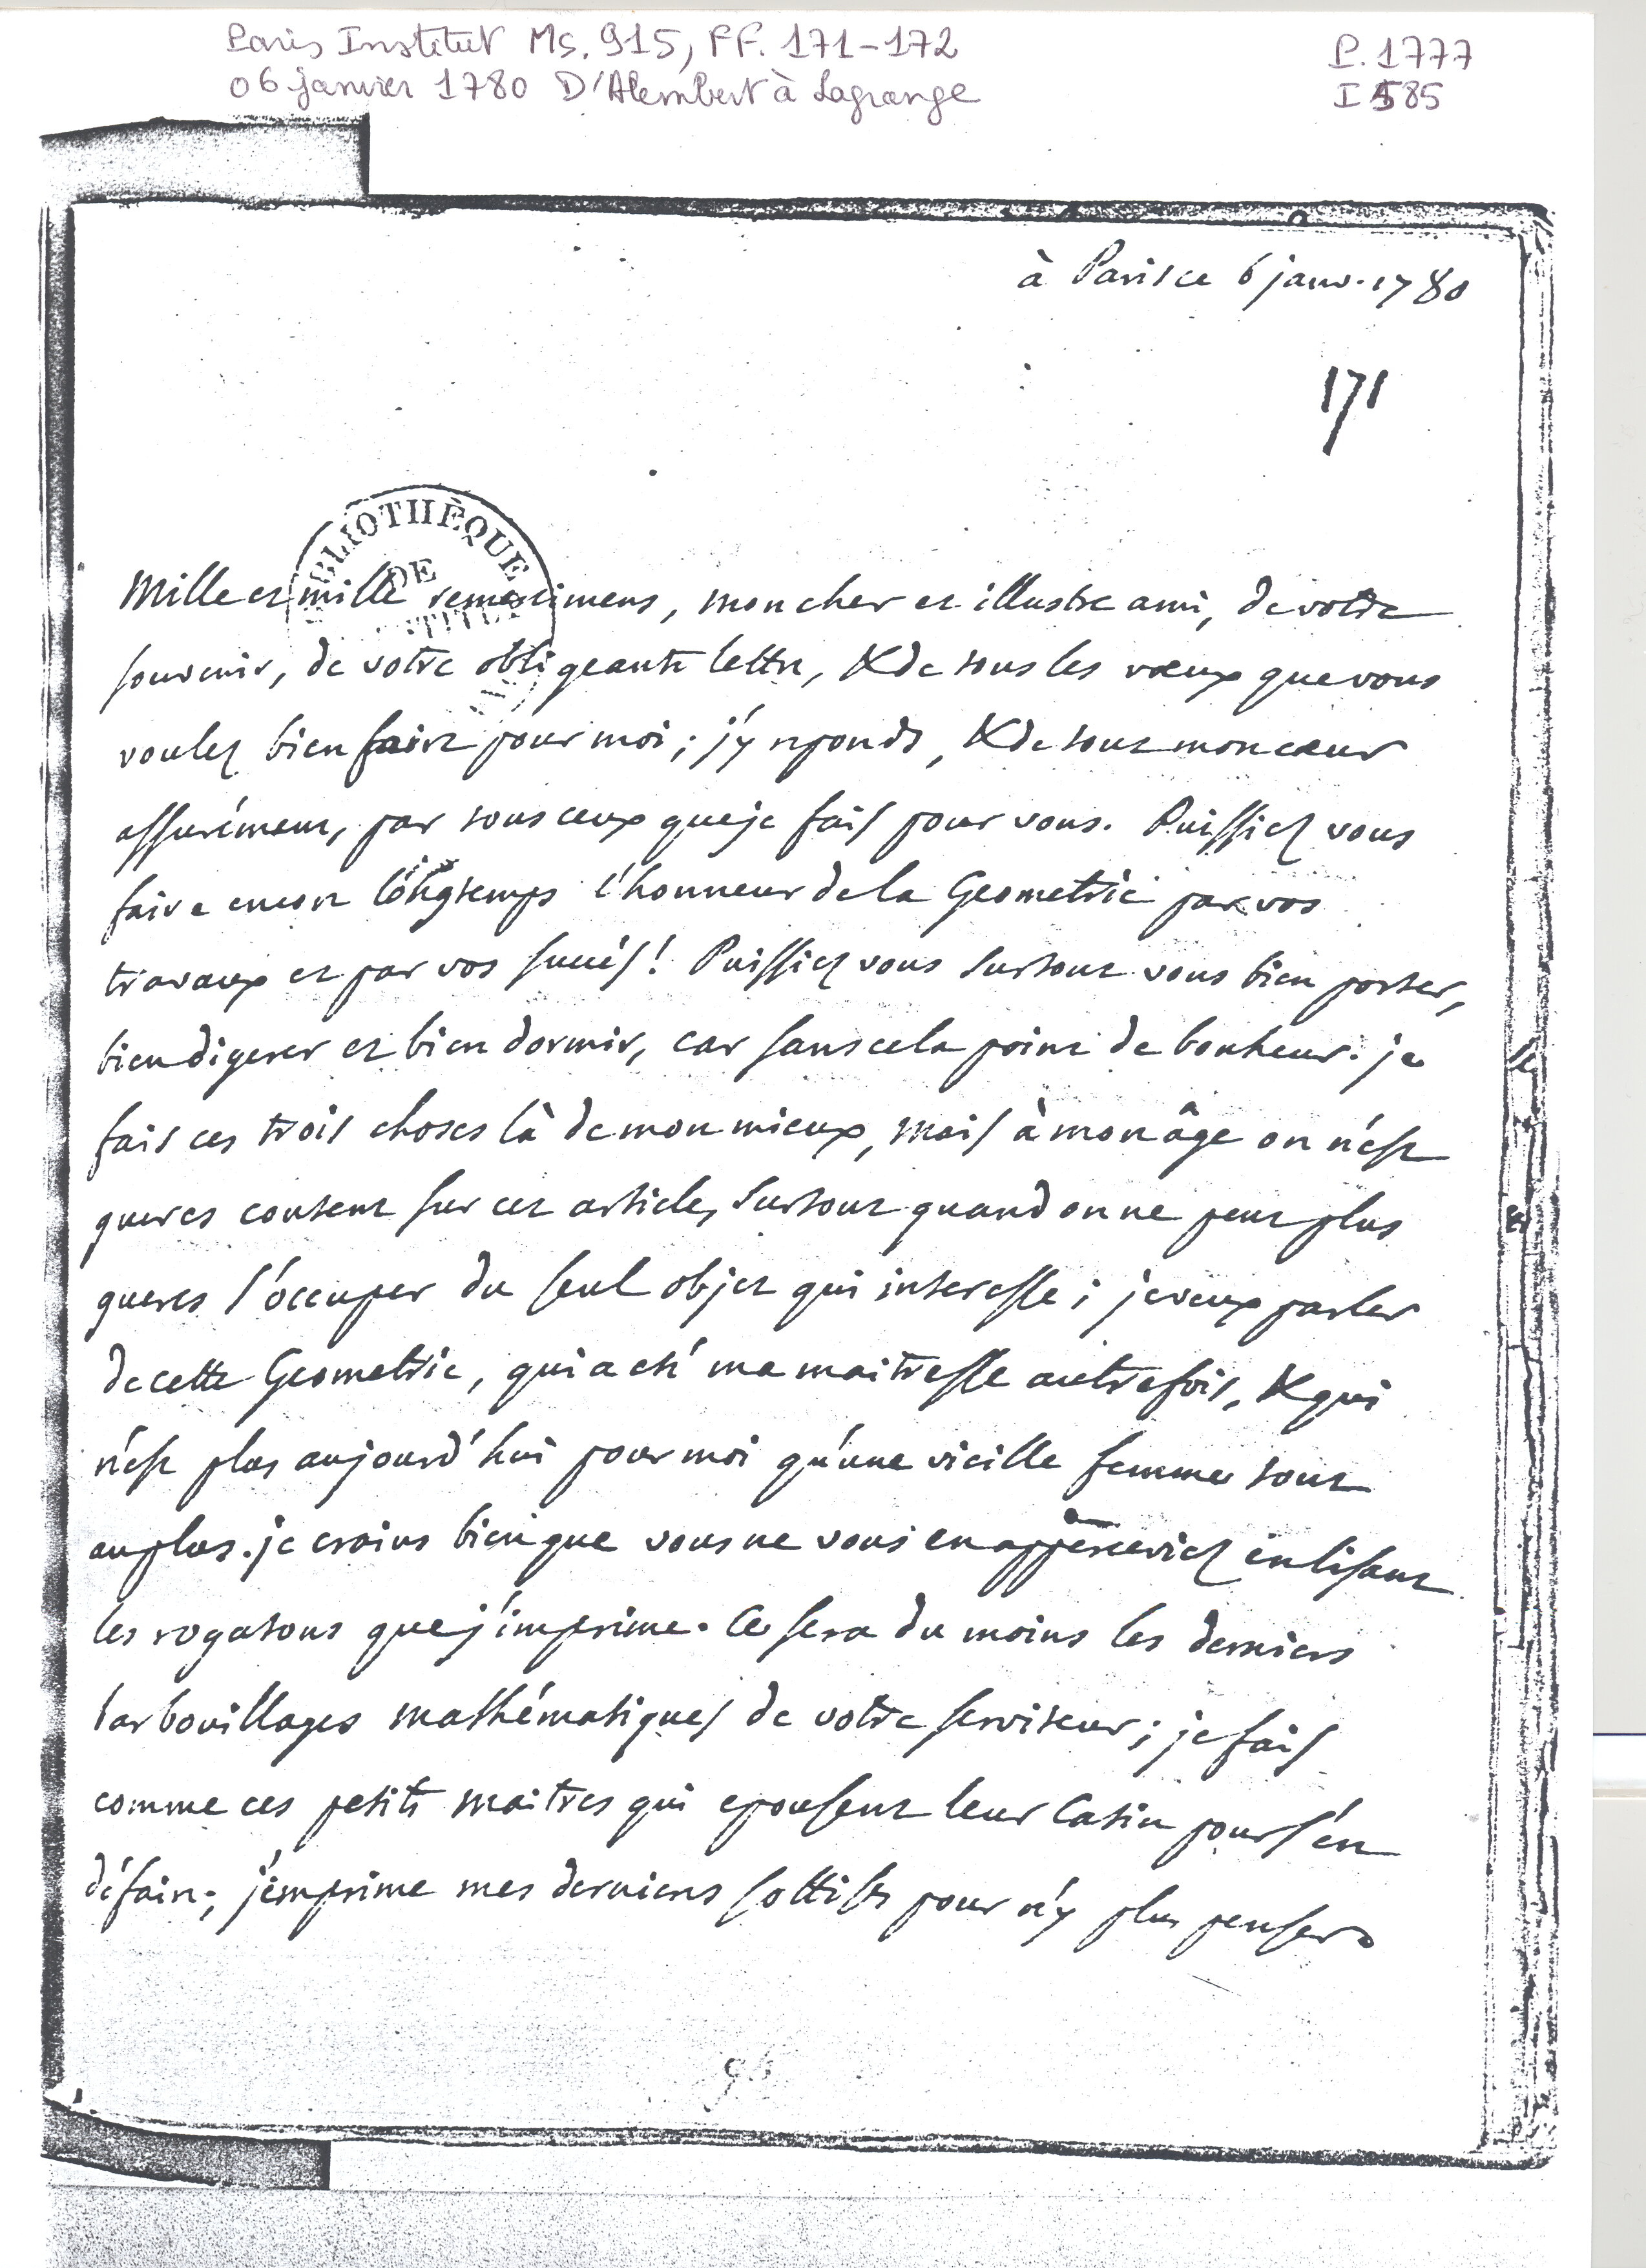 Paris Institut Ms. 915, FF. 171-172
P. 1777
06 janvier 1780 D'Alembert à Lagrange
I 585
à Paris ce 6 janv. 1780
171
BIBLIOTHÈQUE
DE
Mille et mille remerciments, mon cher et illustre ami, de votre
souvenir, de votre obligeante lettre, & de tous les vœux que vous
voulez bien faire pour moi; j'y reponds, & de tout mon cœur
assurément, par tous ceux que je fais pour vous. Puissiez vous
faire encore longtemps l'honneur de la Geometrie par vos
travaux et par vos succés! Puissiez vous surtout vous bien porter,
bien digerer et bien dormir, car sans cela point de bonheur. je
fais ces trois choses là de mon mieux, mais à mon âge on n'est
gueres content sur cet article, surtout quand on ne peut plus
gueres s'occuper du seul objet qui interesse; je veux parler
de cette Geometrie, qui a eté ma maitresse autrefois, & qui
n'est plus aujourd'hui pour moi qu'une vieille femme tout
au plus. je crains bien que vous ne vous en apperceviez en lisant
les rogatons que j'imprime. Ce sera du moins les derniers
barbouillages mathématiques de votre serviteur; je fais
comme ces petits maitres qui epousent leur Catin pour s'en
défaire; j'imprime mes dernieres sottises pour n'y plus penser.